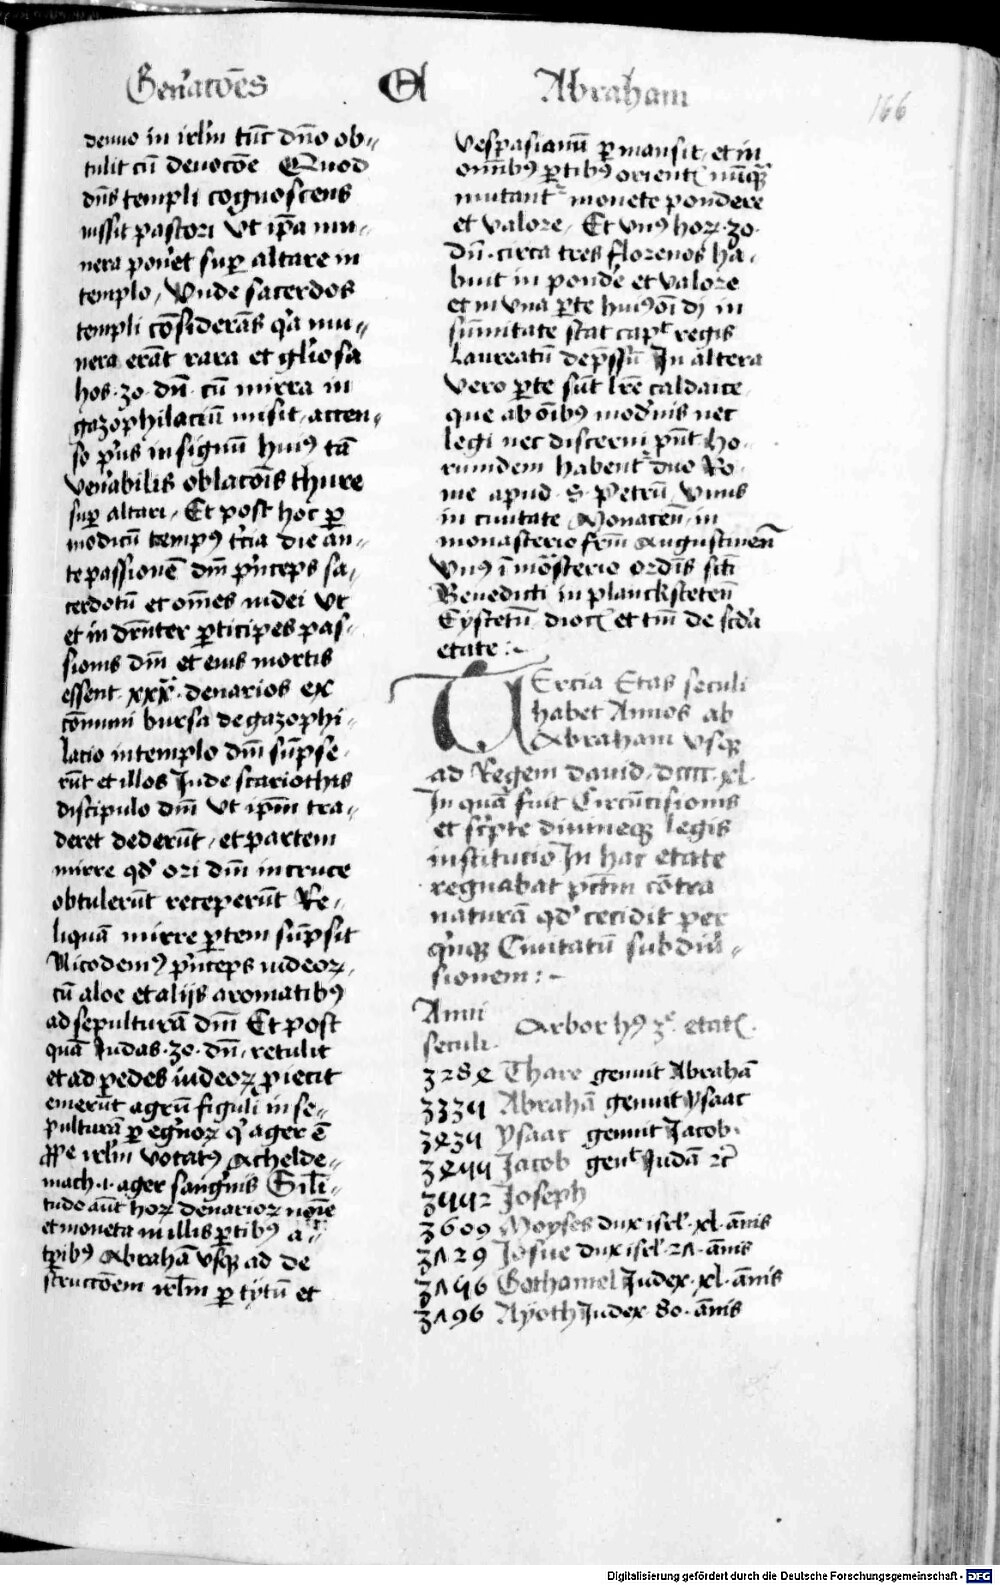 Gen̄acōes A Abraham
166
denuo in irlm̄ tūc dn̄o ob-
tulit cū deuocōe Quod
dn̄s templi cognoscens
iussit pastori vt ip̄a mu-
nera pon̄et sup̱ altare in
templo, Vnde sacerdos
templi cōsiderās qͥa mu-
nera erāt rara et gl̄iosa
hos · 30 · dn̄ · cū mirra in
gazophilaciū misit, accen-
so pͥus in signū huiꝰ tā
ven̄abilis oblacōis thure
sup̱ altari, Et post hoc ꝑ
modicū tempꝰ t̄cia die an-
te passionē dm̄ pͥnceps sa-
cerdotū et om̄es iudei vt
et in dn̄ter ꝑticipes pas-
sionis dm̄ et eius mortis
essent · xxx · denarios ex
cōmuni bursa de gazophi-
lacio in templo dm̄ sūpse-
rūt et illos Jude scariothis
discipulo dm̄ vt ip̄m tra-
deret dederūt, et partem
mirre qd̓ ori dm̄ in cruce
obtulerūt receperūt Re-
liquā mirre ꝑtem sūpsit
Nicodemꝰ pͥnceps iudeoꝝ,
cū aloe et alijs aromatibꝰ
ad sepulturā dm̄ Et post
quā Judas · 30 · dn̄ · retulit
et ad pedes iudeoꝝ ꝓiecit
emerūt agrū figuli in se-
pulturā ꝑegͥnoꝝ qͥ ager ē
ꝓpe irlm̄ vocatꝰ Achelde-
mach · i · ager sangͥnis Sil̄i-
tudo aūt hoꝝ denarioꝝ noīe
et moneta in illis ꝑtibꝰ a
tp̄ibꝰ Abrahā vsqꝫ ad de
struccōem irlm̄ ꝑ tytū et
vespasianū ꝑmansit, et in
om̄ibꝰ ꝑtibꝰ orient nūqꝫ
mutant᷑ monete pondere
et valore, Et vnꝰ hoꝝ · 30 ·
dn̄ · circa tres florenos ha-
buit in pond̄e et valore
et in vna ꝑte huiꝰōi dj in
sūmitate stat capt regis
laureatū dep̄ssū In altera
vero ꝑte sūt lr̄e caldaice
que ab oībꝰ mod̓nis nec
legi nec discerni pn̄t Ho-
rumdem habent᷑ duo Ro-
me apud · S · Petrū, Vnus
in ciuitate Monaceñ, in
monasterio frm̄ Augustineñ
Vnꝰ ī mōsterio ordīs sctī
Benedicti in plancksteteñ
Eystetñ dioc et tm̄ de scd̓a
etate :~
TErcia Etas seculi
habet Annos ab
Abraham vsqꝫ
ad Regem dauid, dcccc · xl ·
In qua fuit Circūcisionis
et scͥpte diuineqꝫ legis
institucio In hac etate
regnabat pctm̄ cōtra
naturā qd̓ cecidit per
qͥnqꝫ Ciuitatū subūi-
sionem :~
Anni
seculi · Arbor hꝰ 3ᵉ · etat ·
328 Thare genuit Abrahā
3334 Abrahā genuit ysaac
3434 ysaac genuit Jacob ·
3494 Jacob gent Judā ꝛc̄
3442 Joseph
3609 Moyses dux isrl̄ · xl · ānis
3729 Josue dux isrl̄ · 27 · ānis
3756 Gothaniel Judex · xl · ānis
3796 Ayoth Judex · 80 · ānis
Digitalisierung gefördert durch die Deutsche Forschungsgemeinschaft - DFG